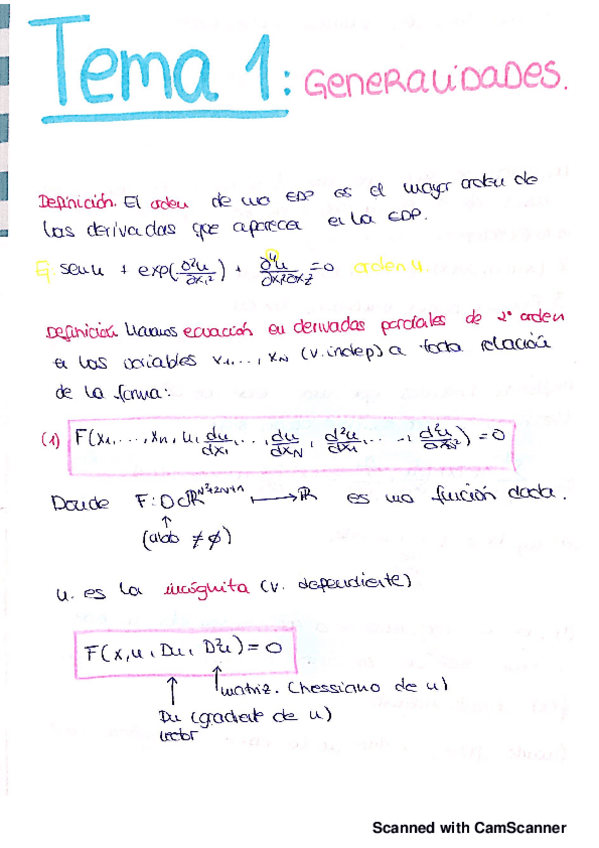 Tema 1: GENERALIDADES.
Definición. El orden de una EDP es el mayor orden de
las derivadas que aparece en la EDP.
Ej: senu + exp(∂²u/∂x₁²) + ∂⁴u/∂x₁²∂x₂² = 0 orden 4
Definición Llamamos ecuación en derivadas parciales de 2º orden
en las variables x₁,..., x_N (v. indep) a toda relación
de la forma:
(1) F(x₁,..., x_N, u, du/dx₁, ..., du/dx_N, d²u/dx₁², ..., d²u/∂x_N²) = 0
Donde F: O⊂ℝ^{N²+2N+1} ⟼ ℝ es una función dada.
↑
(abto ≠ ∅)
u. es la incógnita (v. dependiente)
F(x, u, Du, D²u) = 0
↑ ↑ matriz. (hessiano de u)
Du (gradiente de u)
vector
Scanned with CamScanner